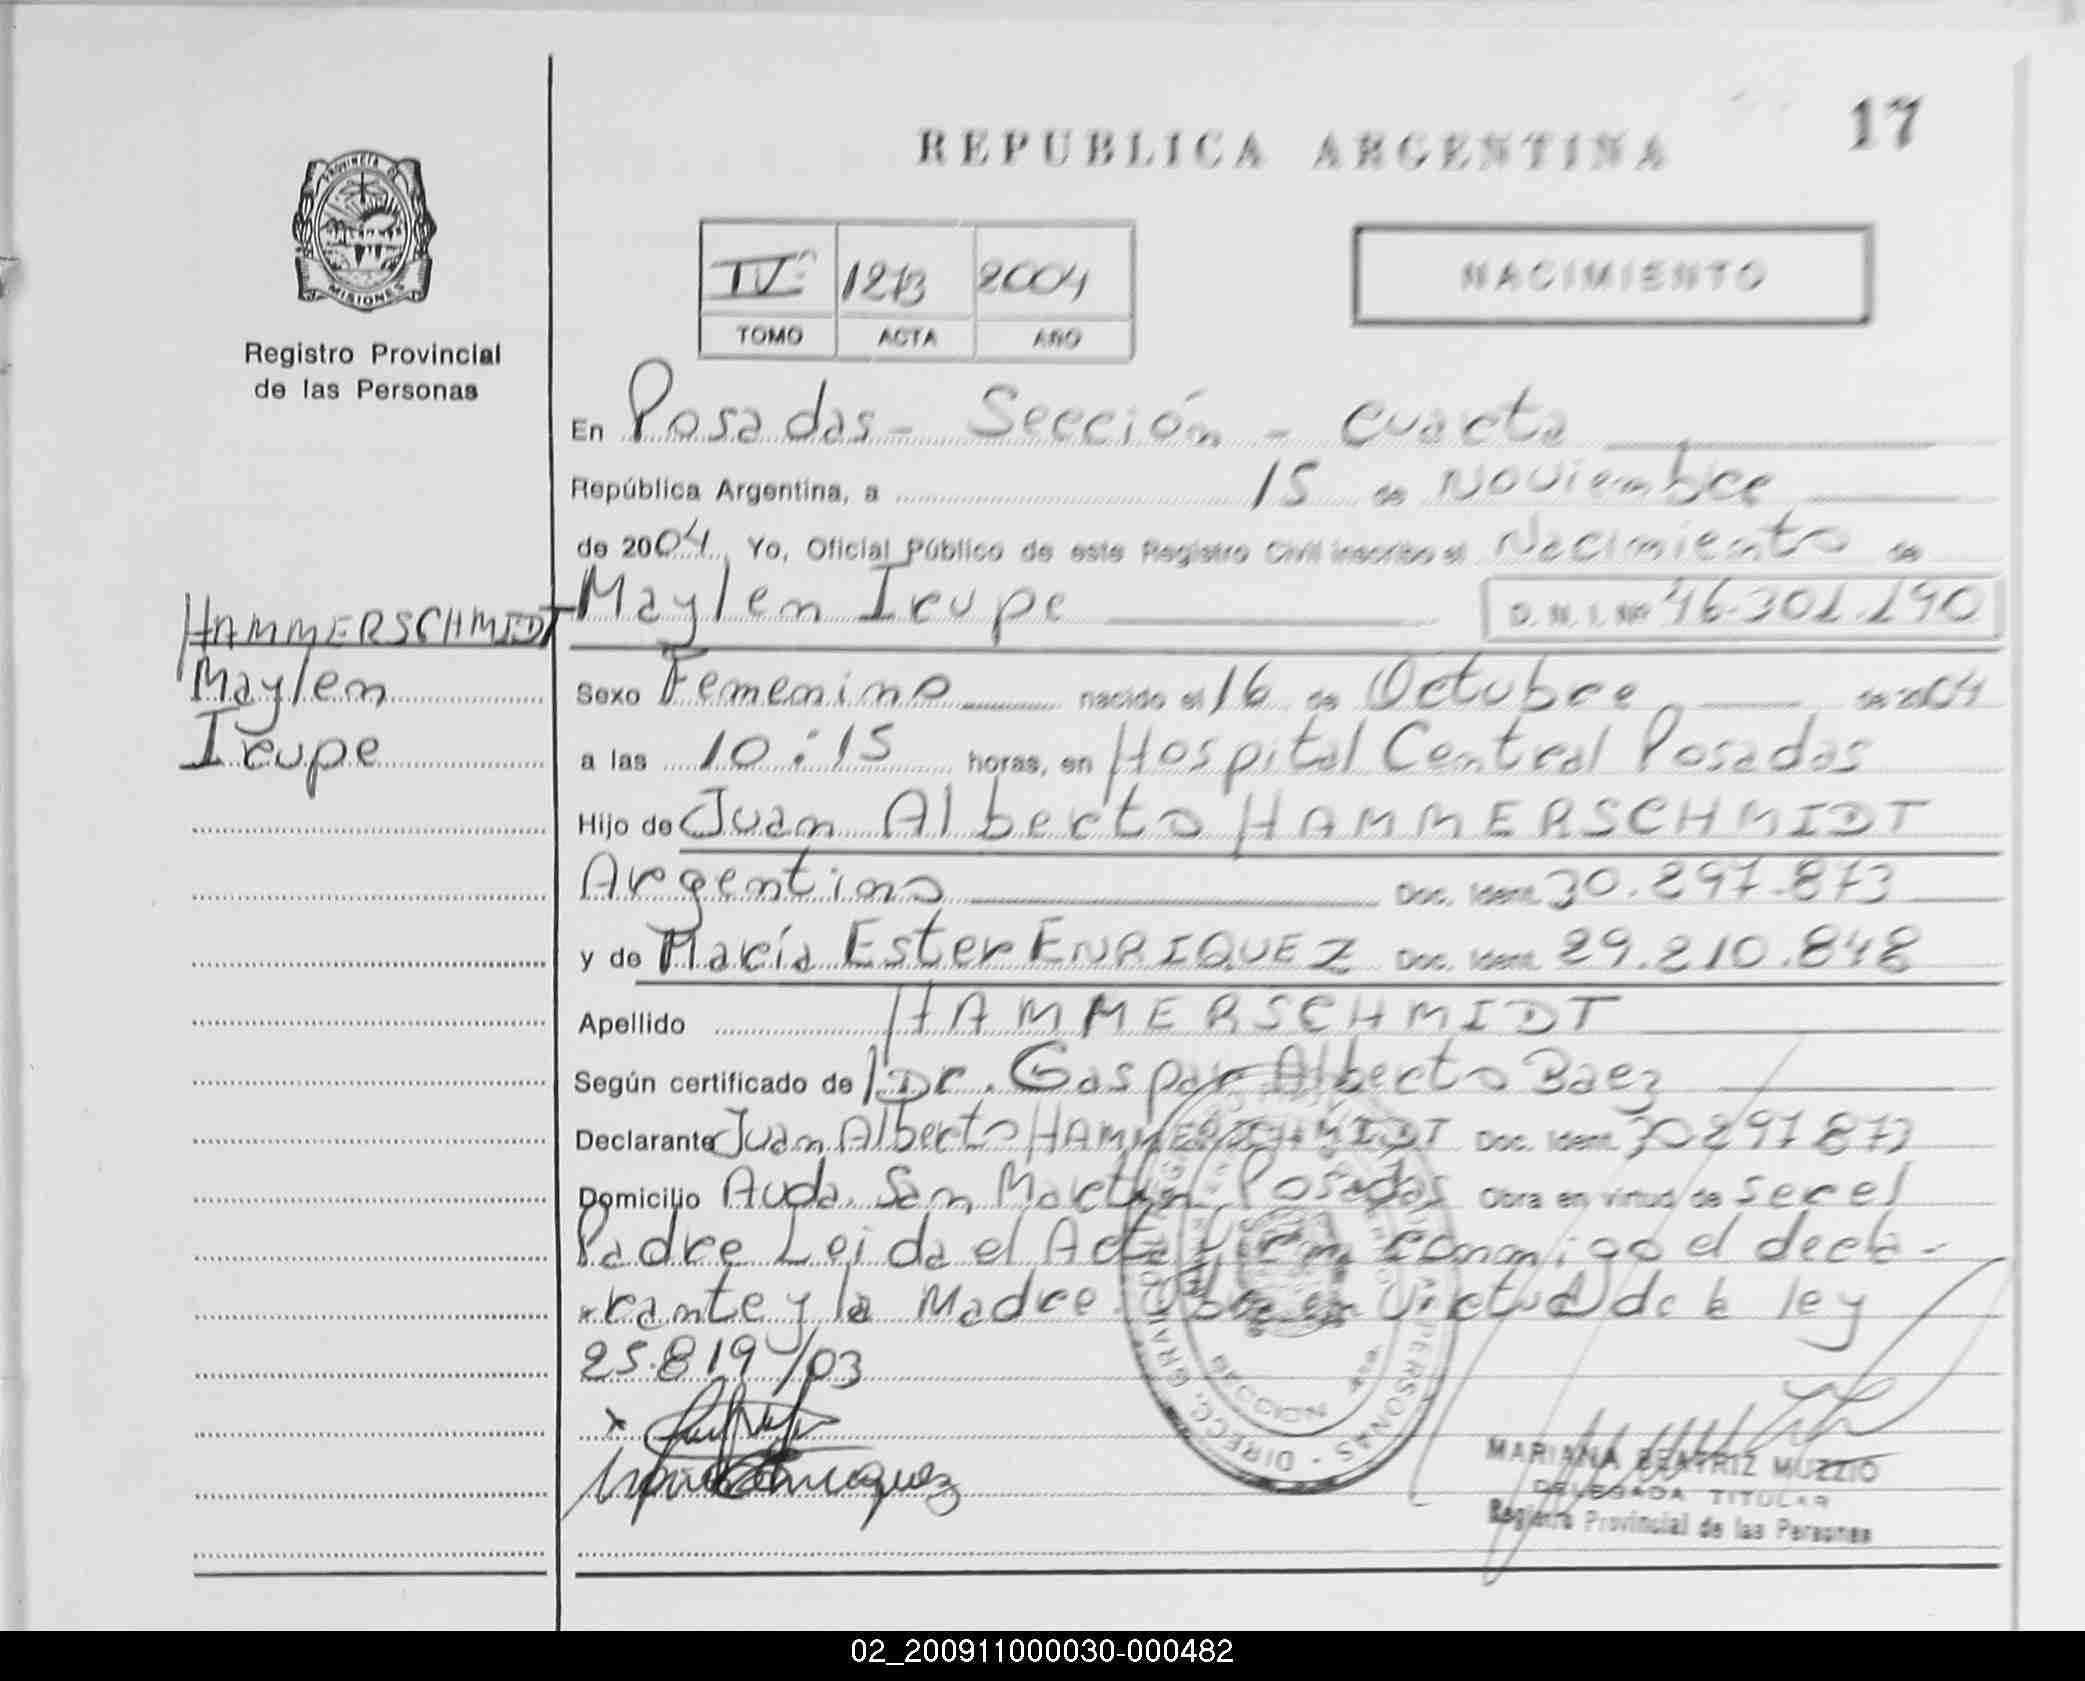 17
REPUBLICA ARGENTINA
PROVINCIA DE
MISIONES
Registro Provincial
de las Personas
IV 1213 2004
TOMO ACTA AÑO
NACIMIENTO
En Posadas - Sección - Cuarta
República Argentina, a 15 de Noviembre
de 2004, Yo, Oficial Público de este Registro Civil inscribo el Nacimiento de
Maylen Irupe D.N.I. Nº 46.301.190
HAMMERSCHMIDT
Maylen
Irupe
Sexo Femenino nacido el 16 de Octubre de 2004
a las 10:15 horas, en Hospital Central Posadas
Hijo de Juan Alberto HAMMERSCHMIDT
Argentino Doc. Ident. 30.297.873
y de María Ester ENRIQUEZ Doc. Ident. 29.210.848
Apellido HAMMERSCHMIDT
Según certificado de Dr. Gaspar Alberto Baez
Declarante Juan Alberto HAMMERSCHMIDT Doc. Ident. 30297873
Domicilio Avda. San Martin Posadas Obra en virtud de ser el
Padre Leida el Acta firman conmigo el decla-
rante y la Madre. Obra en Virtud de la ley
25.819/03
MARIANA BEATRIZ MUZZIO
DELEGADA TITULAR
Registro Provincial de las Personas
02_200911000030-000482